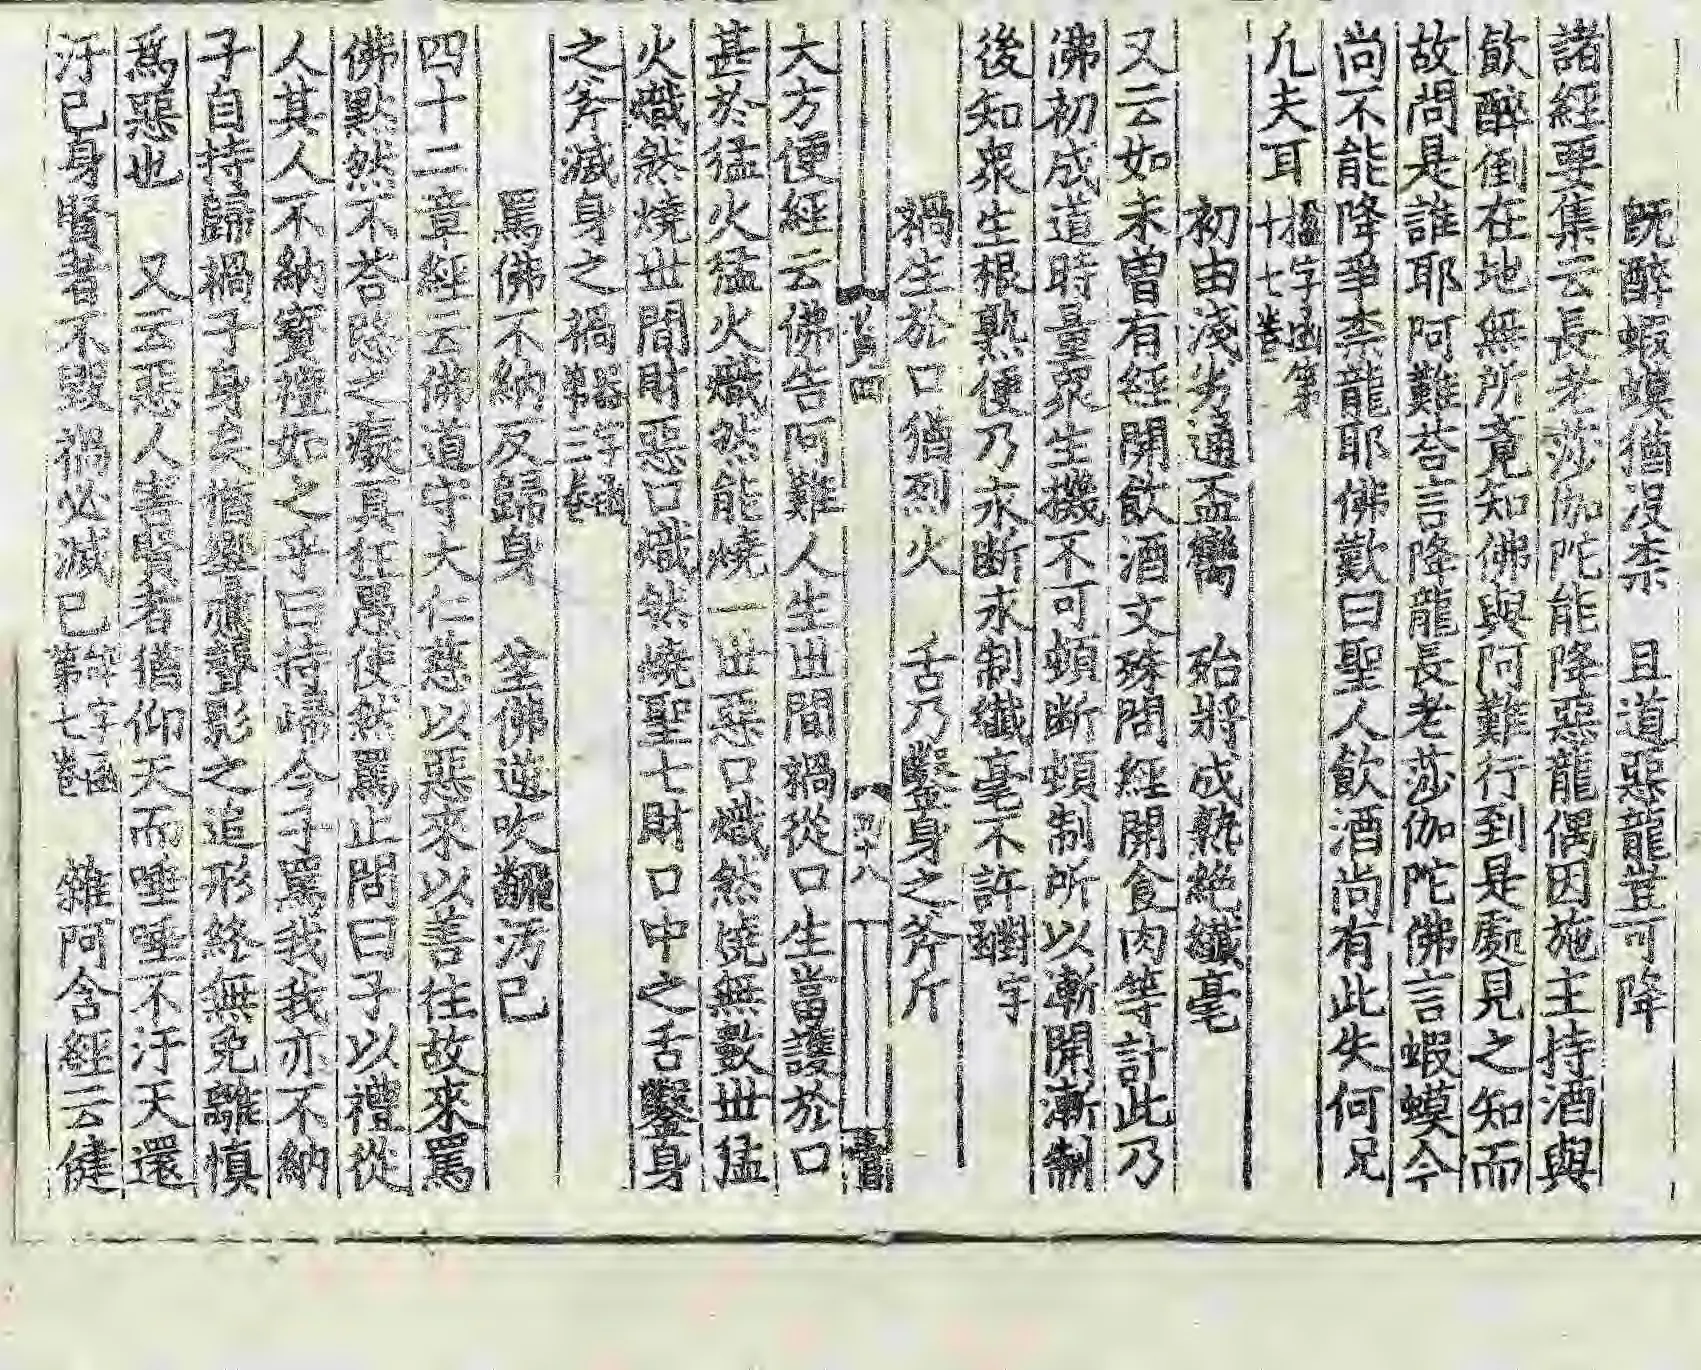 既醉蝦蟆猶沒柰　且道惡龍豈可降
諸經要集云長老莎伽陀能降惡龍偶因施主持酒與
飮醉倒在地無所竟知佛與阿難行到是處見之知而
故問是誰耶阿難荅言降龍長老莎伽陀佛言蝦蟆今
尚不能降爭柰龍耶佛歎曰聖人飮酒尚有此失何况
凡夫耳楹字函第
十七卷
初由淺劣通盃臠　殆將成熟絶纎毫
又云如未曽有經開飮酒文殊問經開食肉等計此乃
佛初成道時量衆生機不可頓斷頓制所以漸開漸制
後知衆生根熟便乃永斷永制纎毫不許
禍生於口猶烈火　舌乃鑿身之斧斤
四
四十八
大方便經云佛告阿難人生丗間禍從口生當護於口
甚於猛火猛火熾然能燒一丗惡口熾然燒無數丗猛
火熾然燒丗間財惡口熾然燒聖七財口中之舌鑿身
之斧滅身之禍字函
第三卷
罵佛不納反歸身　坌佛逆吹翻汚己
四十二章經云佛道守大仁慈以惡來以善往故來罵
佛默然不荅愍之癡冥狂愚使然罵止問曰子以禮從
人其人不納實禮如之乎曰持歸今子罵我我亦不納
子自持歸禍子身矣猶響應聲影之追形終無免離愼
爲惡也　又云惡人害賢者猶仰天而唾唾不汙天還
汙己身賢者不毀禍必滅己字函
第七卷　雜阿含經云健